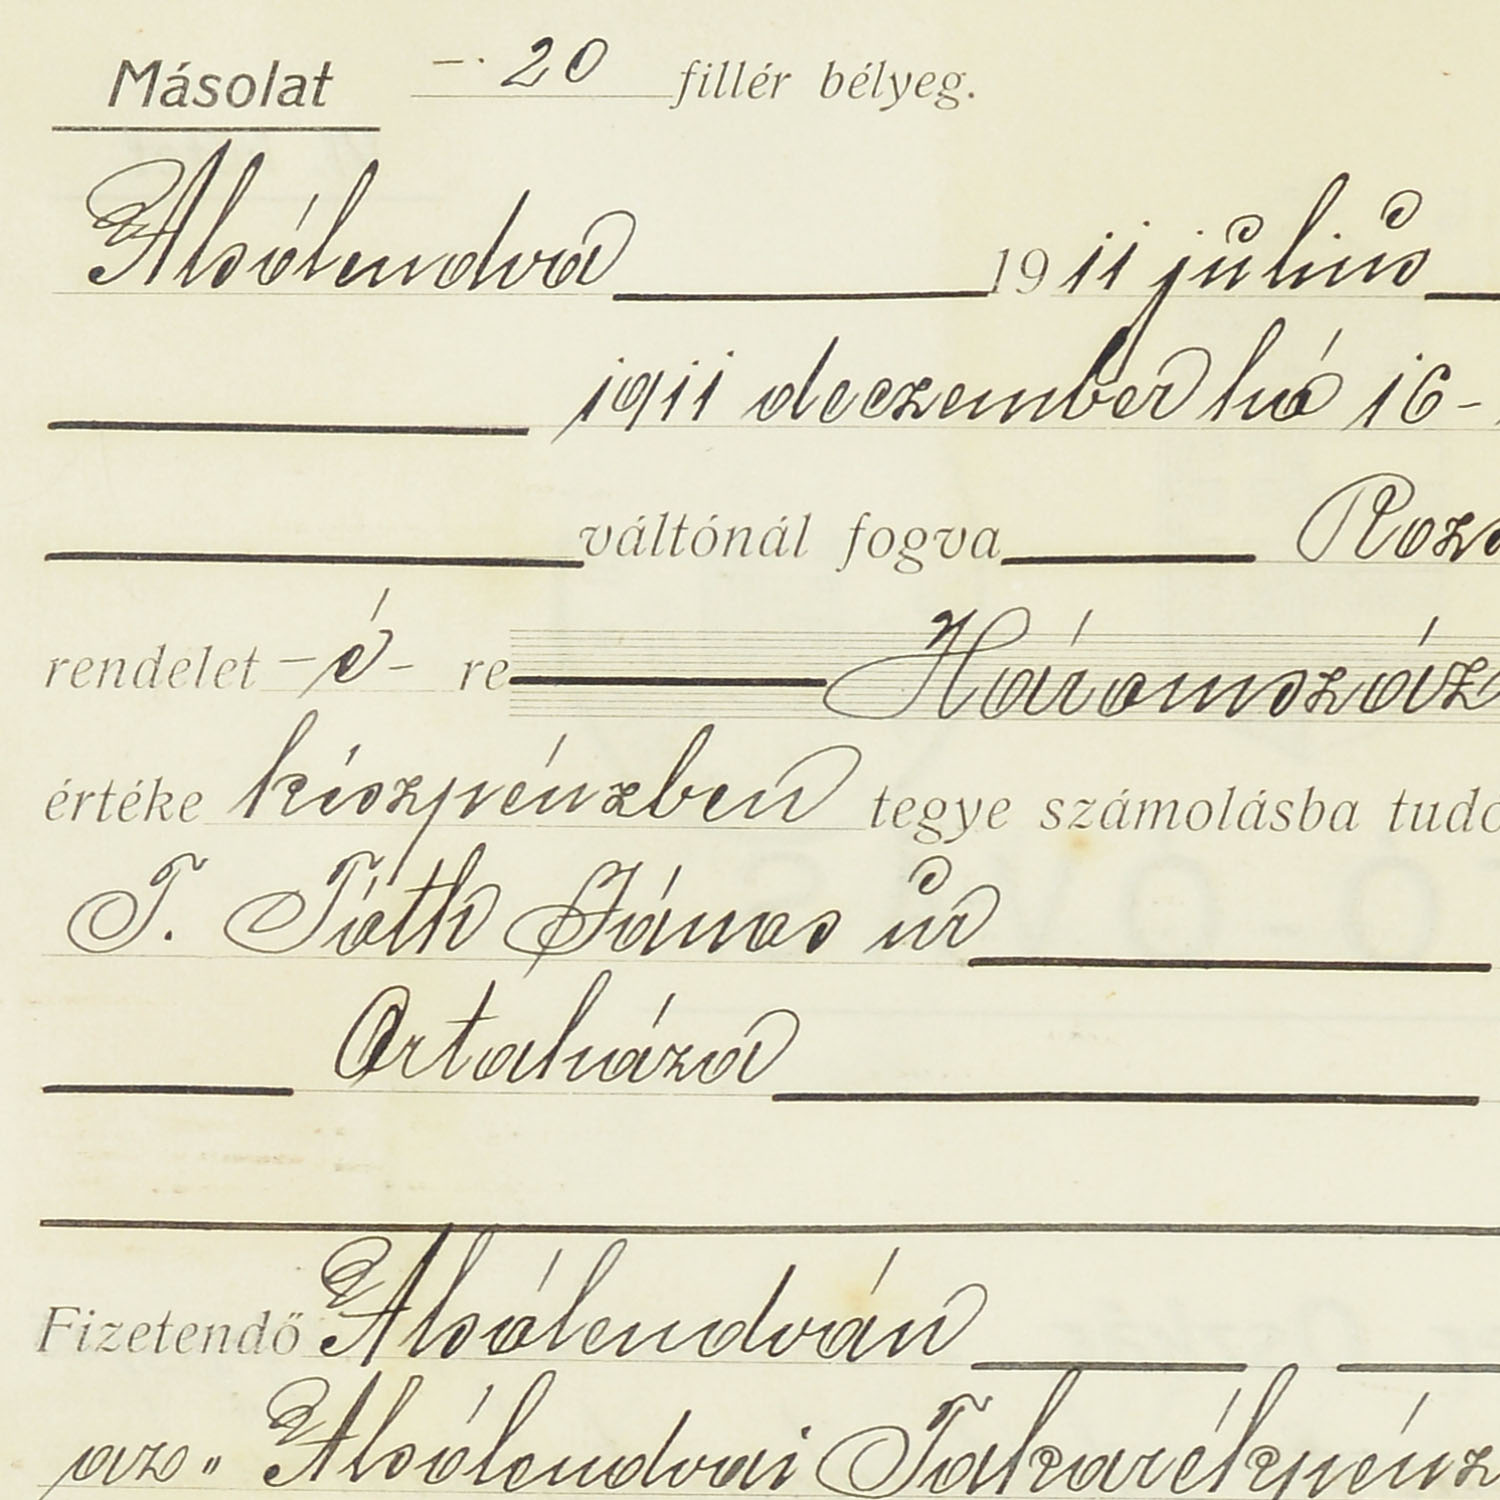 Másolat – 20 fillér bélyeg.
Alsólendva 1911 július
1911 deczember hó 16-
váltónál fogva
rendelet -é- re Háromszáz
értéke készpénzben tegye számolásba
T. Tóth János úr
Ortaháza
Fizetendő Alsólendván
az „ Alsólendvai Takarékpénz